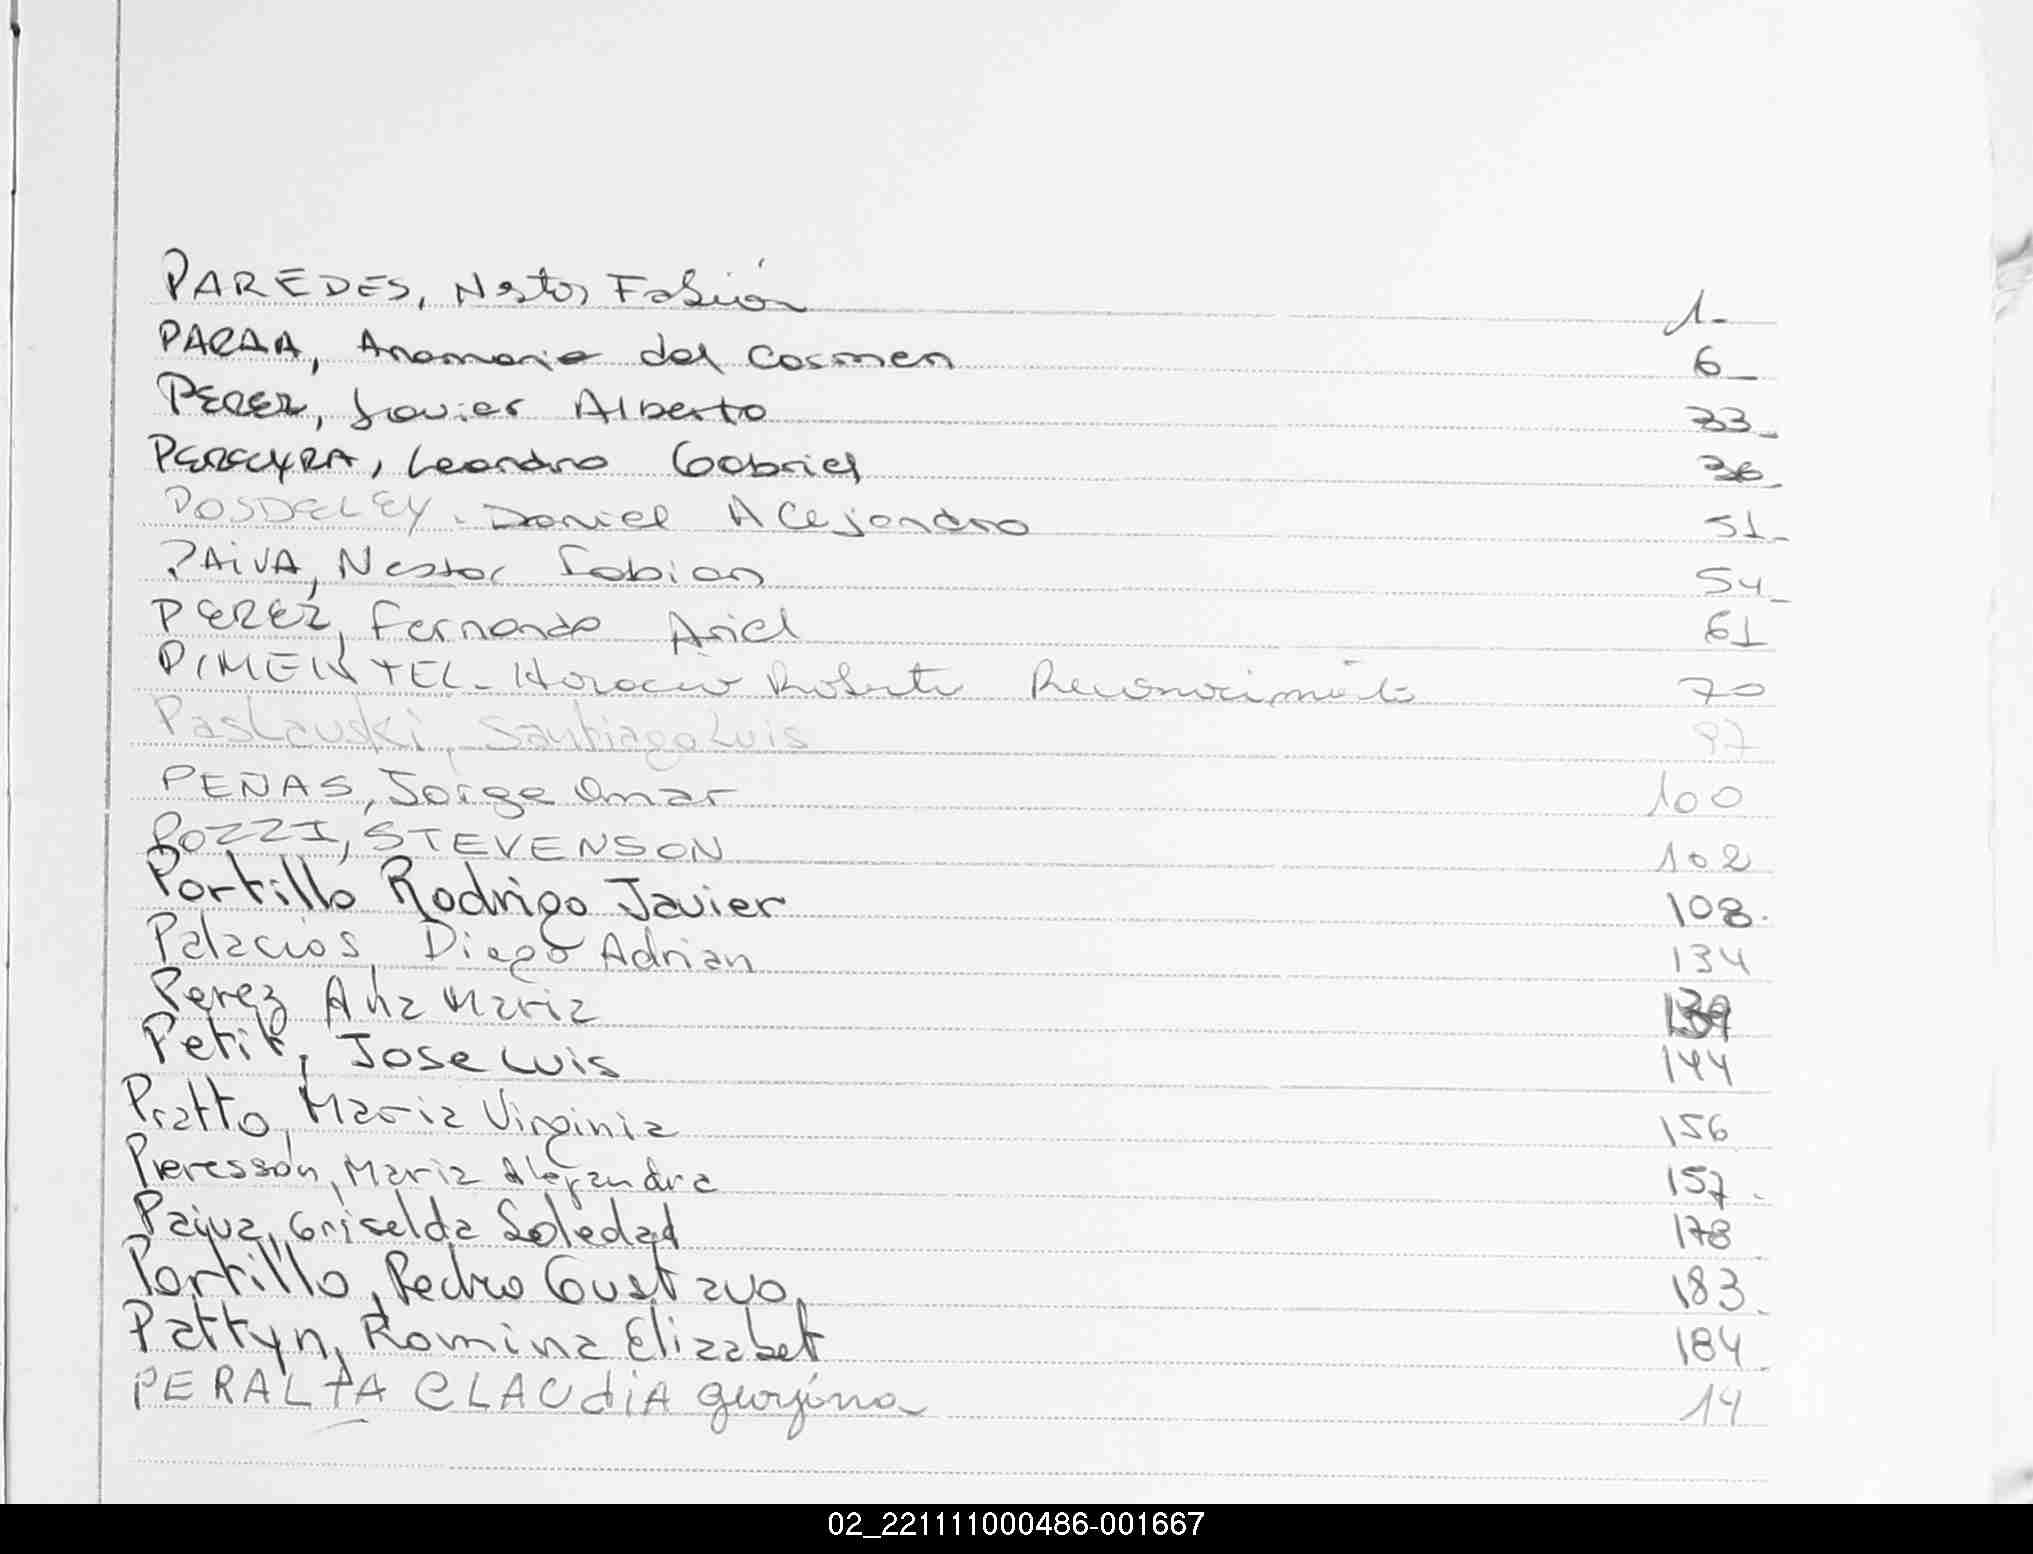 PAREDES, Nestor Fabián 1-
PARRA, Anamaria del Carmen 6-
PEREZ, Javier Alberto 33-
PEREYRA, Leandro Gabriel 36-
POSDELEY. Daniel Alejandro 51-
PAIVA, Nestor Fabian 54-
PEREZ, Fernando Ariel 61
PIMENTEL- Horacio Roberto Reconocimiento 70
Paslauski, Santiago Luis 97
PEÑAS, Jorge Omar 100
POZZI, STEVENSON 102
Portillo Rodrigo Javier 108.
Palacios, Diego Adrian 134
Perez Ana Maria
Petit, Jose Luis 144
Pratto, Maria Virginia 156
Pieressón, Maria Alejandra 157.
Paiva, Griselda Soledad 178
Portillo, Pedro Gustavo, 183.
Pattyn, Romina Elizabet 184.
PERALTA CLAUdiA 14
02_221111000486-001667